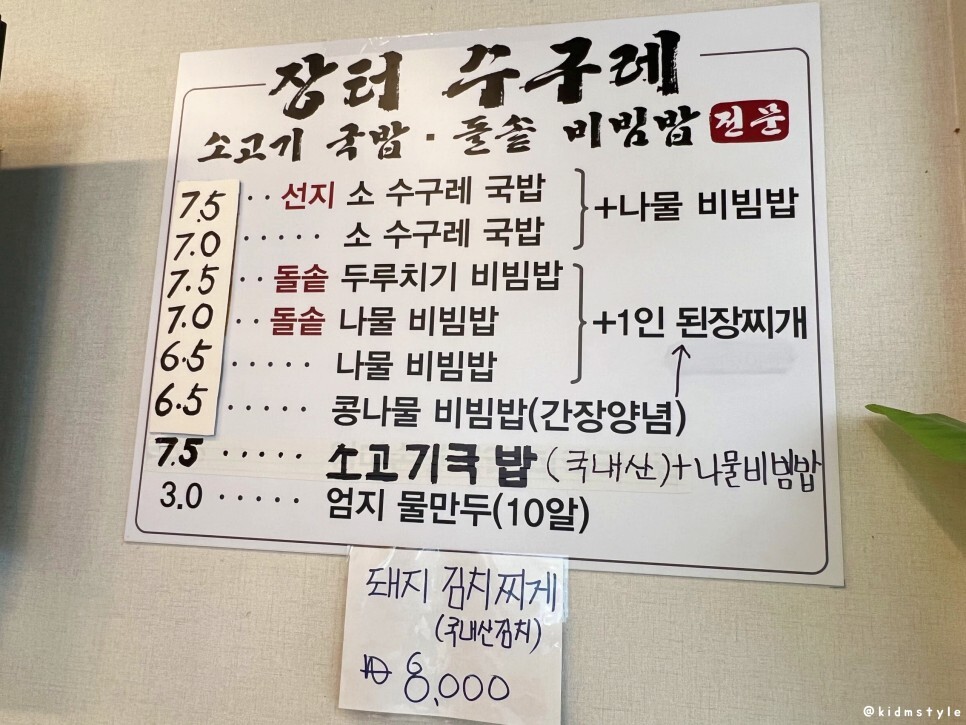 장터 수구레
소고기 국밥 · 돌솥 비빔밥 전문
7.5 ·· 선지 소 수구레 국밥
7.0 ····· 소 수구레 국밥
+나물 비빔밥
7.5 ·· 돌솥 두루치기 비빔밥
7.0 ·· 돌솥 나물 비빔밥
6.5 ····· 나물 비빔밥
+1인 된장찌개
6.5 ····· 콩나물 비빔밥(간장양념)
7.5 ····· 소고기국밥 (국내산)+나물비빔밥
3.0 ····· 엄지 물만두(10알)
돼지 김치찌게
(국내산김치)
₩ 8,000
@kidmstyle